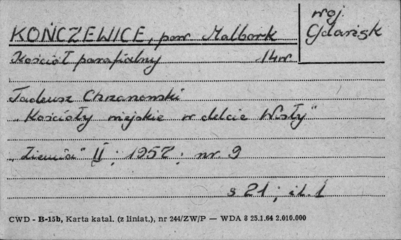 KOŃCZEWICE, pow. Malbork
woj. Gdańsk
Kościół parafialny 14w.
Tadeusz Chrzanowski
"Kościoły wiejskie w delcie Wisły"
"Ziemia" II; 1957; nr. 9
s 21; il. 1
CWD - B-15b, Karta katal. (z liniat.), nr 244/ZW/P — WDA 8 25.1.64 2.010.000